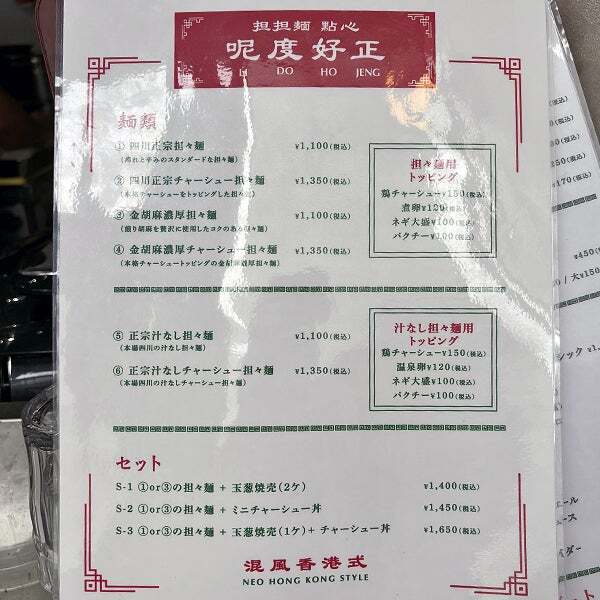 担担麺 點心
呢度好正
LI DO HO JENG
麺類
① 四川正宗担々麺 ¥1,100(税込)
(痺れと辛みのスタンダードな担々麺)
② 四川正宗チャーシュー担々麺 ¥1,350(税込)
(本格チャーシューをトッピングした担々麺)
③ 金胡麻濃厚担々麺 ¥1,100(税込)
(煎り胡麻を贅沢に使用したコクのある担々麺)
④ 金胡麻濃厚チャーシュー担々麺 ¥1,350(税込)
(本格チャーシュートッピングの金胡麻濃厚担々麺)
担々麺用
トッピング
鶏チャーシュー¥150(税込)
煮卵¥120(税込)
ネギ大盛¥100(税込)
パクチー¥100(税込)
⑤ 正宗汁なし担々麺 ¥1,100(税込)
(本場四川の汁なし担々麺)
⑥ 正宗汁なしチャーシュー担々麺 ¥1,350(税込)
(本場四川の汁なしチャーシュー担々麺)
汁なし担々麺用
トッピング
鶏チャーシュー¥150(税込)
温泉卵¥120(税込)
ネギ大盛¥100(税込)
パクチー¥100(税込)
セット
S-1 ①or③の担々麺 + 玉葱焼売(2ケ) ¥1,400(税込)
S-2 ①or③の担々麺 + ミニチャーシュー丼 ¥1,450(税込)
S-3 ①or③の担々麺 + 玉葱焼売(1ケ)+ チャーシュー丼 ¥1,650(税込)
混風香港式
NEO HONG KONG STYLE